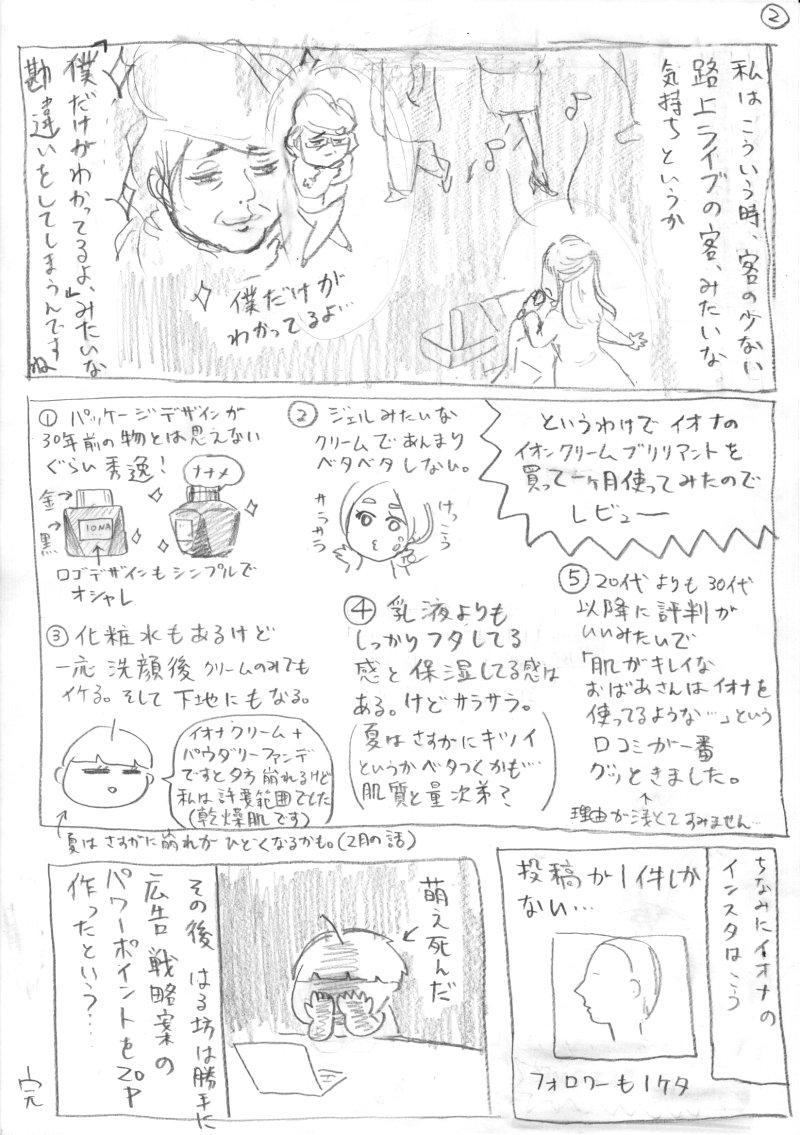 ②
私はこういう時、客の少ない
路上ライブの客、みたいな
気持ちというか
僕だけが
わかってるよ…
「僕だけがわかってるよ」みたいな
勘違いをしてしまうんですね
というわけでイオナの
イオンクリームブリリアントを
買って一ヶ月使ってみたので
レビュー
① パッケージデザインが
30年前の物とは思えない
ぐらい秀逸!
ナナメ
金→
黒→
IONA
ロゴデザインもシンプルで
オシャレ
② ジェルみたいな
クリームであんまり
ベタベタしない。
けっこう
サラサラ
③ 化粧水もあるけど
一応洗顔後クリームのみでも
イケる。そして下地にもなる。
イオナクリーム+
パウダリーファンデ
ですと夕方崩れるけど
私は許容範囲でした
(乾燥肌です)
夏はさすがに崩れがひどくなるかも。(2月の話)
④ 乳液よりも
しっかりフタしてる
感と保湿してる感は
ある。けどサラサラ。
(夏はさすがにキツイ
というかベタつくかも…
肌質と量次第?)
⑤ 20代よりも30代
以降に評判が
いいみたいで
「肌がキレイな
おばあさんはイオナを
使ってるような…」という
口コミが一番
グッときました。
理由が浅くてすみません…
ちなみにイオナの
インスタはこう
投稿が1件しか
ない…
フォロワーも1ケタ
萌え死んだ
その後はる坊は勝手に
広告戦略案の
パワーポイントを20P
作ったという…
完